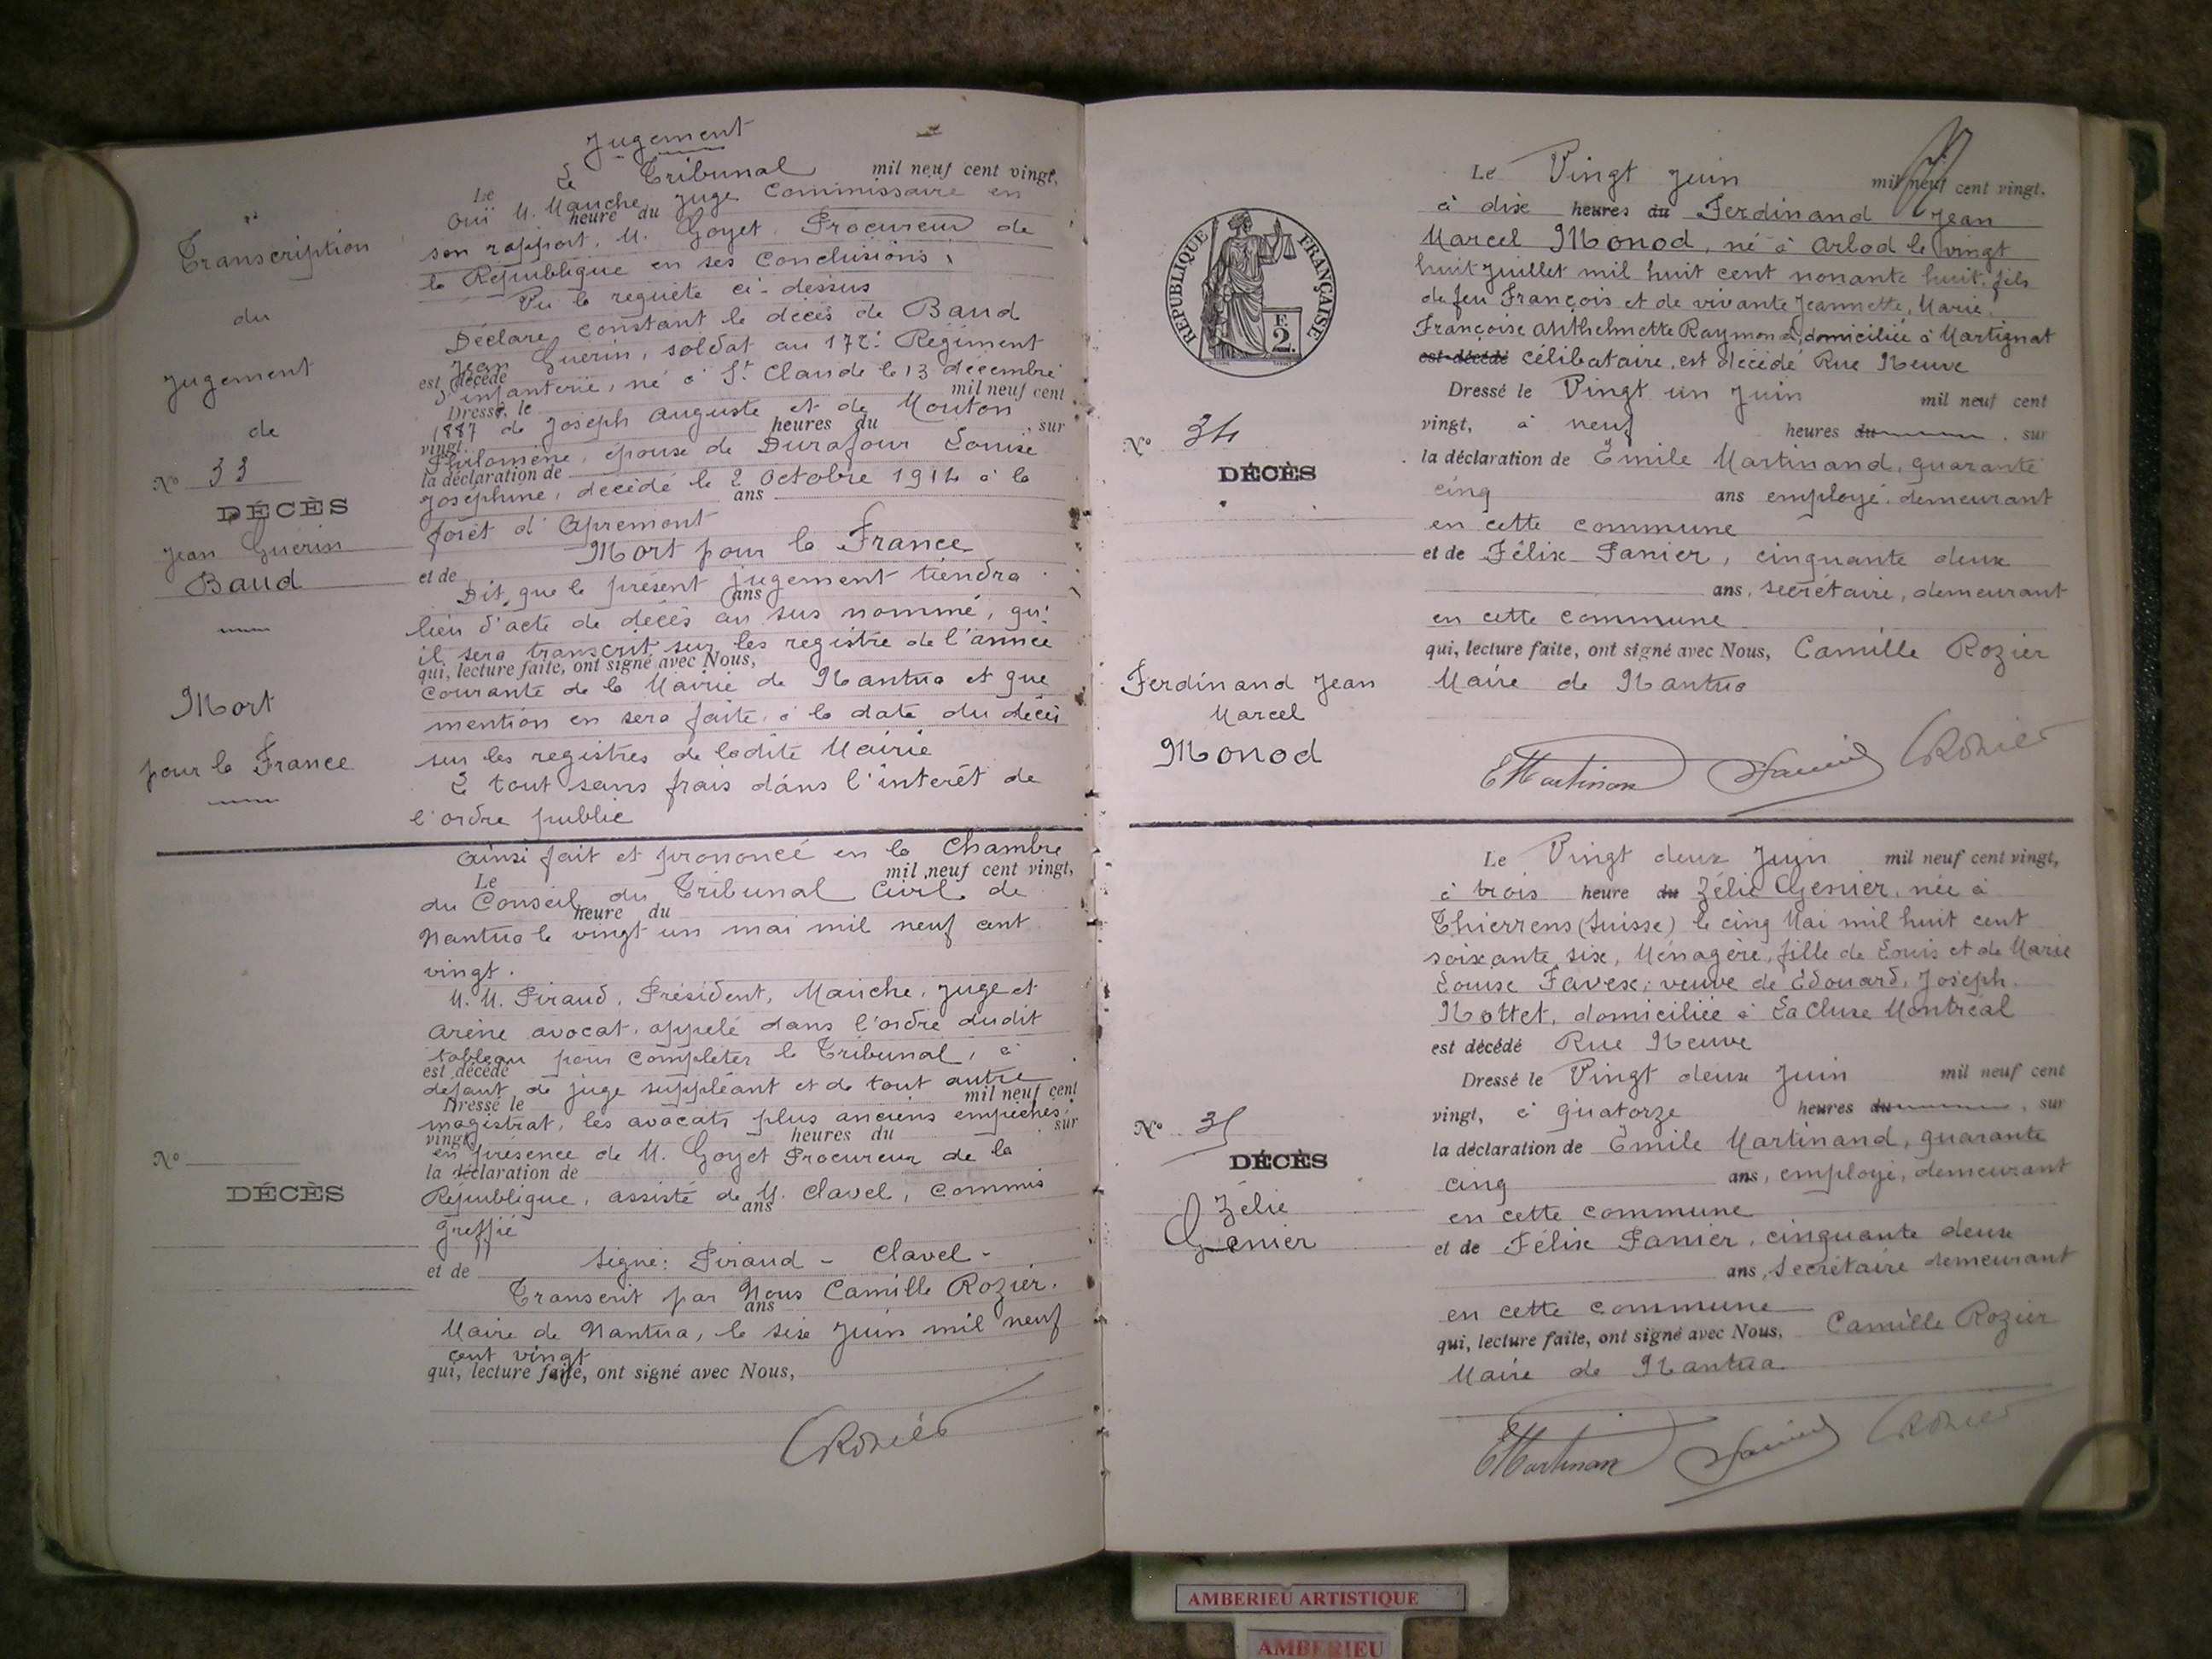 Jugement
Le Tribunal mil neuf cent vingt,
Le
Ouï M. Mauche, juge commissaire en
heure du
son rapport, M. Goyet, Procureur de
la République en ses conclusions,
Vu la requête ci-dessus
Déclare constant le décès de Baud
Jean Guérin, soldat au 172e Régiment
est décédé
d'infanterie, né à St Claude le 13 décembre
Dressé, le mil neuf cent
1887 de Joseph Auguste et de Mouton
vingt, heures du , sur
Philomène, épouse de Durafour Louise
la déclaration de
Joséphine, décédé le 2 Octobre 1914 à la
ans
forêt d'Apremont
Mort pour la France
et de
Dit que le présent jugement tiendra
ans
lieu d'acte de décès au sus nommé, qu'
il sera transcrit sur les registre de l'année
qui, lecture faite, ont signé avec Nous,
courante de la Mairie de Nantua et que
mention en sera faite à la date du décès
sur les registres de ladite Mairie
L tout sans frais dans l'intérêt de
l'ordre public
Transcription
du
jugement
de
No 33
DÉCÈS
Jean Guérin
Baud
Mort
pour la France
Ainsi fait et prononcé en la Chambre
Le mil neuf cent vingt,
du Conseil du Tribunal Civil de
heure du
Nantua le vingt un mai mil neuf cent
vingt.
M. M. Piraud, Président, Mauche, juge et
Arène avocat, appelé dans l'ordre dudit
tableau pour compléter le Tribunal, à
est décédé
défaut de juge suppléant et de tout autre
Dressé le mil neuf cent
magistrat, les avocats plus anciens empêchés,
vingt, heures du sur
en présence de M. Goyet Procureur de la
la déclaration de
République, assisté de M. Clavel, commis
ans
greffié
Signé: Piraud - Clavel -
et de
Transcrit par Nous Camille Rozier,
ans
Maire de Nantua, le six Juin mil neuf
cent vingt
qui, lecture faite, ont signé avec Nous,
CRozier
No
DÉCÈS
RÉPUBLIQUE FRANÇAISE
F.
2.
Le Vingt Juin mil neuf cent vingt.
à dix heures du Ferdinand Jean
Marcel Monod, né à Arbod le vingt
huit Juillet mil huit cent nonante huit, fils
de feu François et de vivante Jeannette, Marie,
Françoise Anthelmette Raymond, domiciliée à Martignat
est décédé célibataire, est décédé Rue Neuve
Dressé le Vingt un Juin mil neuf cent
vingt, à neuf heures du , sur
la déclaration de Emile Martinand, quarante
cinq ans employé, demeurant
en cette commune
et de Félix Panier, cinquante deux
ans, secrétaire, demeurant
en cette commune
qui, lecture faite, ont signé avec Nous, Camille Rozier
Maire de Nantua
EMartinan Panier CRozier
No 34
DÉCÈS
Ferdinand Jean
Marcel
Monod
Le Vingt deux Juin mil neuf cent vingt,
à trois heure du Zélie Genier, née à
Thierrens (Suisse) le cinq Mai mil huit cent
soixante six, Ménagère, fille de Louis et de Marie
Louise Favex, veuve de Edouard, Joseph
Nottet, domiciliée à La Cluse Montréal
est décédé Rue Neuve
Dressé le Vingt deux Juin mil neuf cent
vingt, à quatorze heures du , sur
la déclaration de Emile Martinand, quarante
cinq ans, employé, demeurant
en cette commune
et de Félix Panier, cinquante deux
ans, Secrétaire demeurant
en cette commune
qui, lecture faite, ont signé avec Nous, Camille Rozier
Maire de Nantua
EMartinan Panier CRozier
No 35
DÉCÈS
Zélie
Genier
AMBERIEU ARTISTIQUE
AMBERIEU